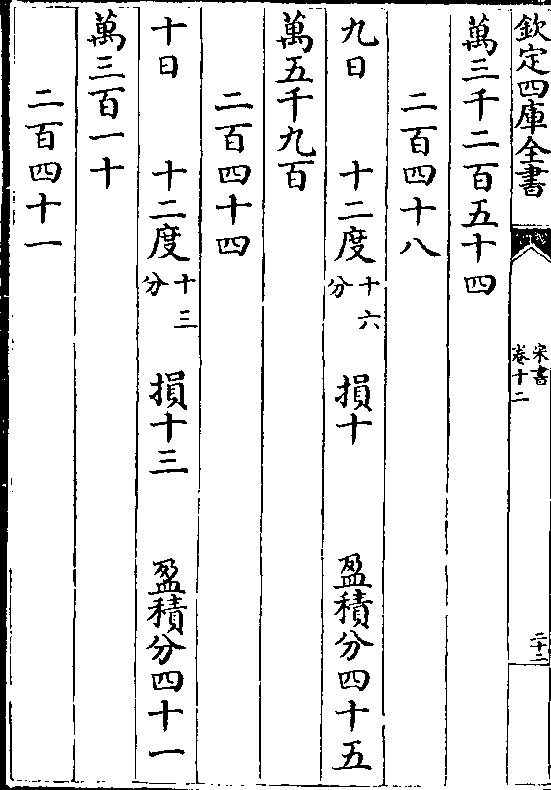 欽定四庫全書
宋書
卷十二
二十二
萬三千二百五十四
二百四十八
九日 十二度十六分 損十 盈積分四十五
萬五千九百
二百四十四
十日 十二度十三分 損十三 盈積分四十一
萬三百一十
二百四十一